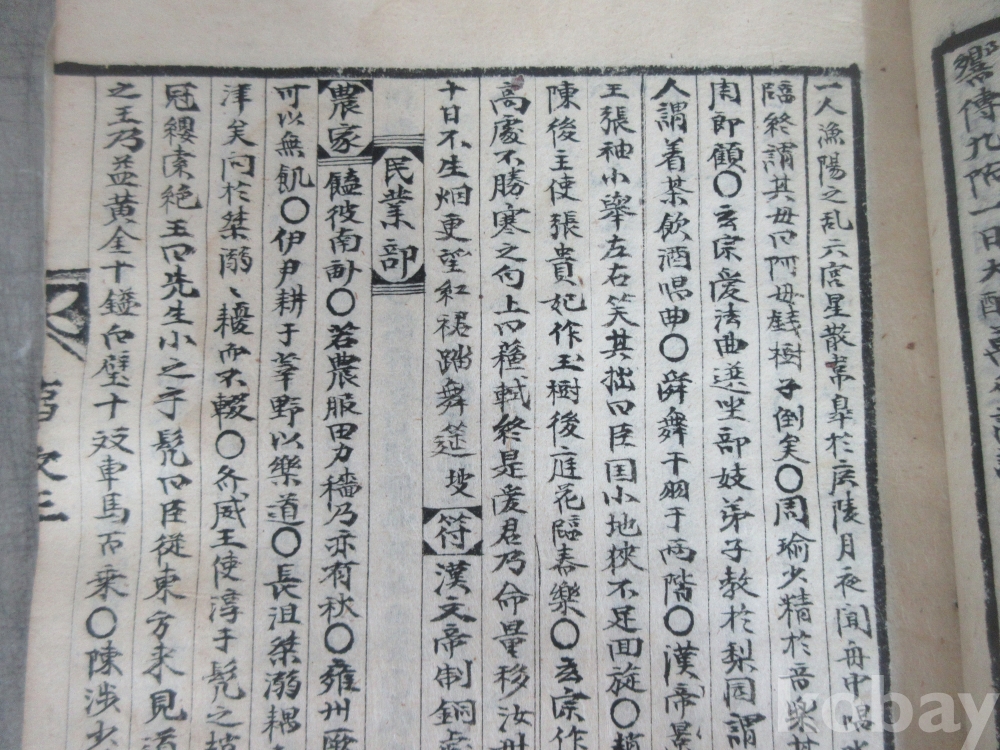 一人漁陽之乱六宮星散韋皐於廣陵月夜聞舟中唱
臨終謂其母曰阿母錢樹子倒矣〇周瑜少精於音樂其
周郎顧〇玄宗愛法曲選坐部妓弟子教於梨園謂
人謂着茶飮酒唱曲〇舜舞干羽于兩階〇漢帝景
王張袖小擧左右笑其拙曰臣国小地狹不足面旋〇趙
陳後主使張貴妃作玉樹後庭花臨春樂〇玄宗作
高處不勝寒之句上曰蘓軾終是愛君乃命量移汝州
十日不生烟更望紅裙踏舞筵 符 漢文帝制銅虎
民業部
農家 饁彼南畝〇若農服田力穡乃亦有秋〇雍州厥
可以無飢〇伊尹耕于莘野以樂道〇長沮桀溺耦
津矣问於桀溺〻耰而不輟〇齐威王使淳于髡之
冠纓索絶王曰先生小之乎髡曰臣從東方来見道
之王乃益黃金十鎰白璧十双車馬百乘〇陳涉少
卷次三
響傳九
一日大
kobay